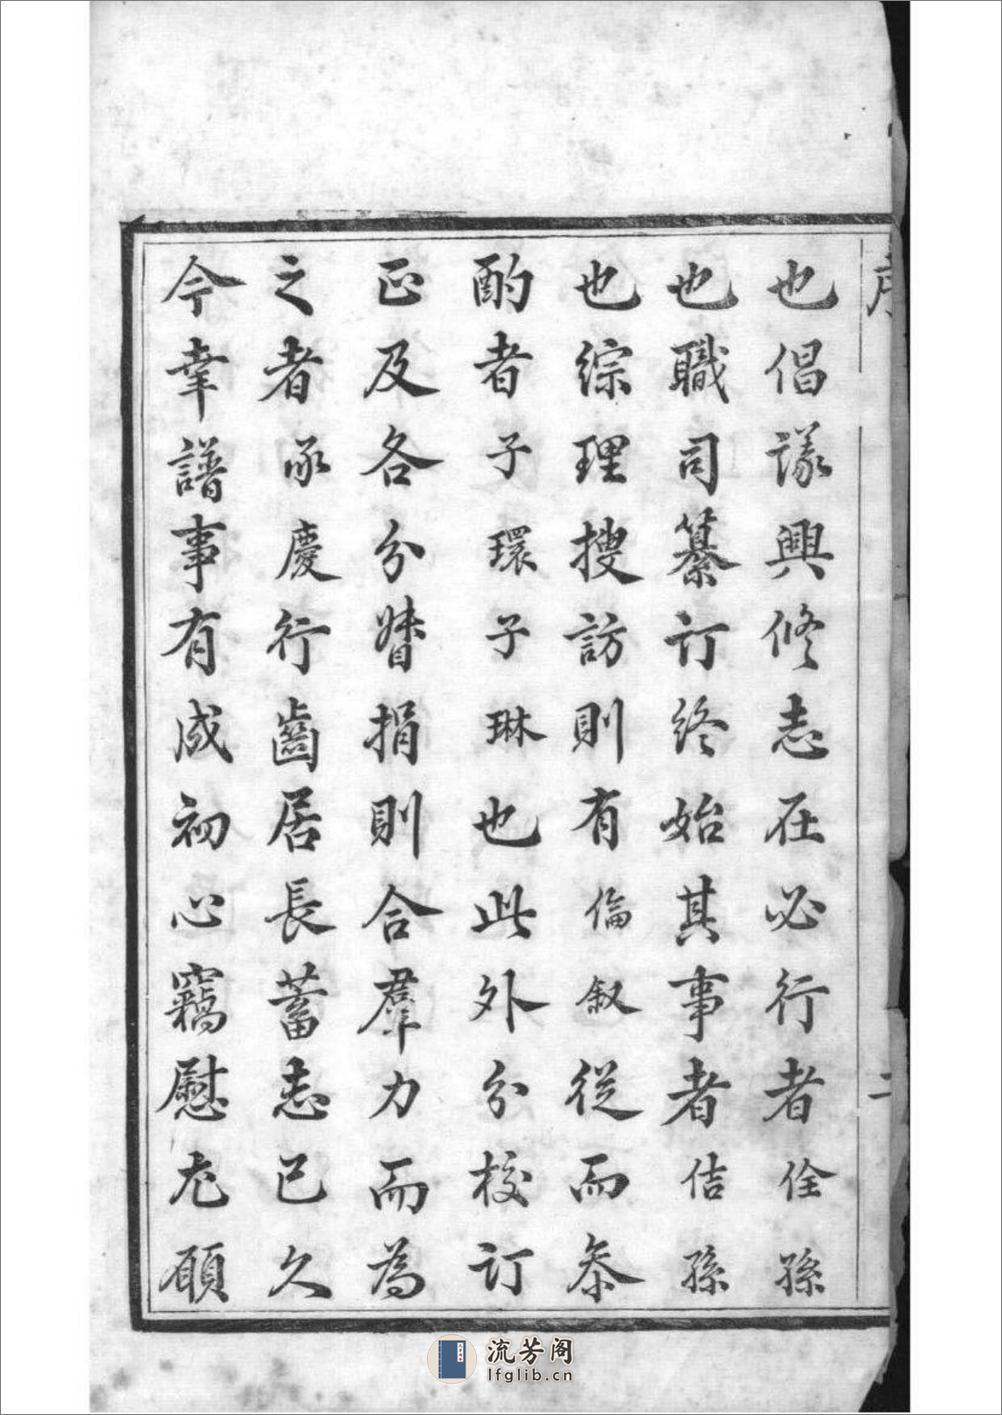 序
二
也倡議興修志在必行者佺孫
也職司纂訂終始其事者佶孫
也綜理搜訪則有倫叙從而叅
酌者子環子琳也此外分校訂
正及各分㬱捐則合羣力而為
之者承慶行齒居長蓄志已久
今幸譜事有成初心竊慰尤願
流芳阁
lfglib.cn